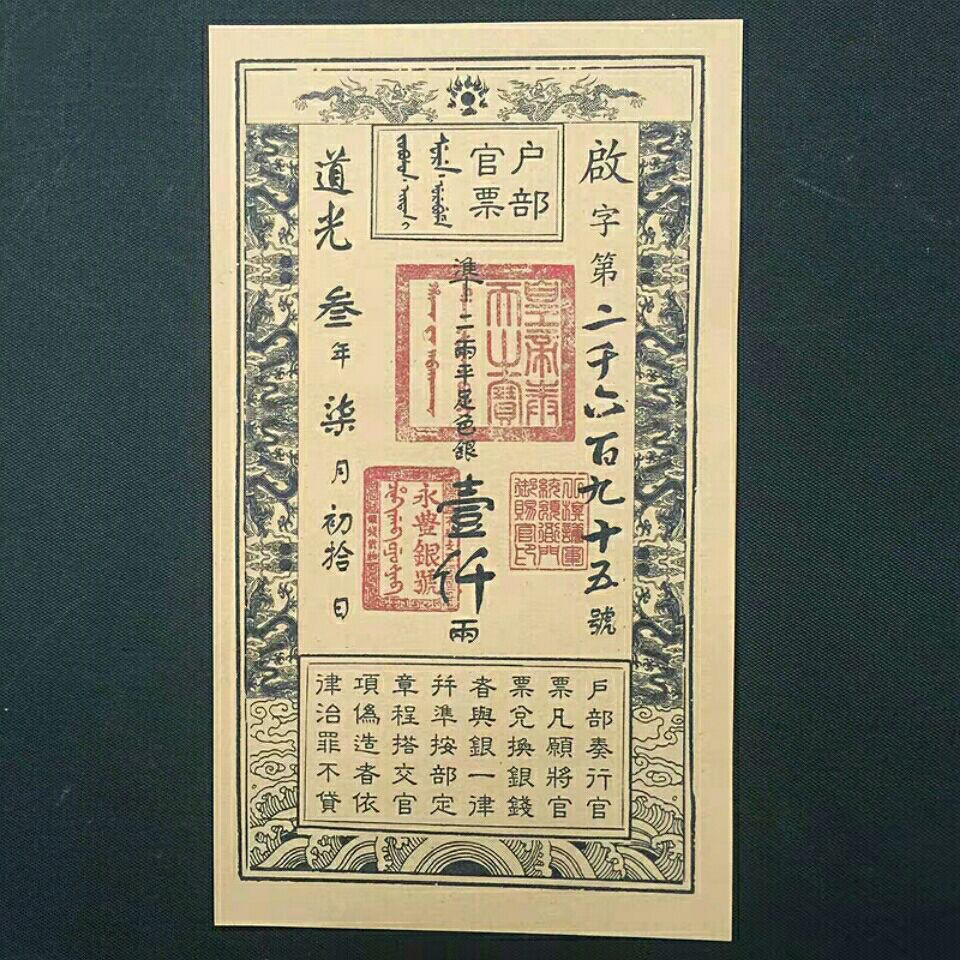 啟字第二千六百九十五號
户部
官票
準二兩平足色銀壹仟兩
皇帝奉
天之寶
永豐銀號
統領衙門
御賜官印
道光叁年柒月初拾日
户部奏行官
票凡願將官
票兌換銀錢
者與銀一律
幷準按部定
章程搭交官
項偽造者依
律治罪不貸